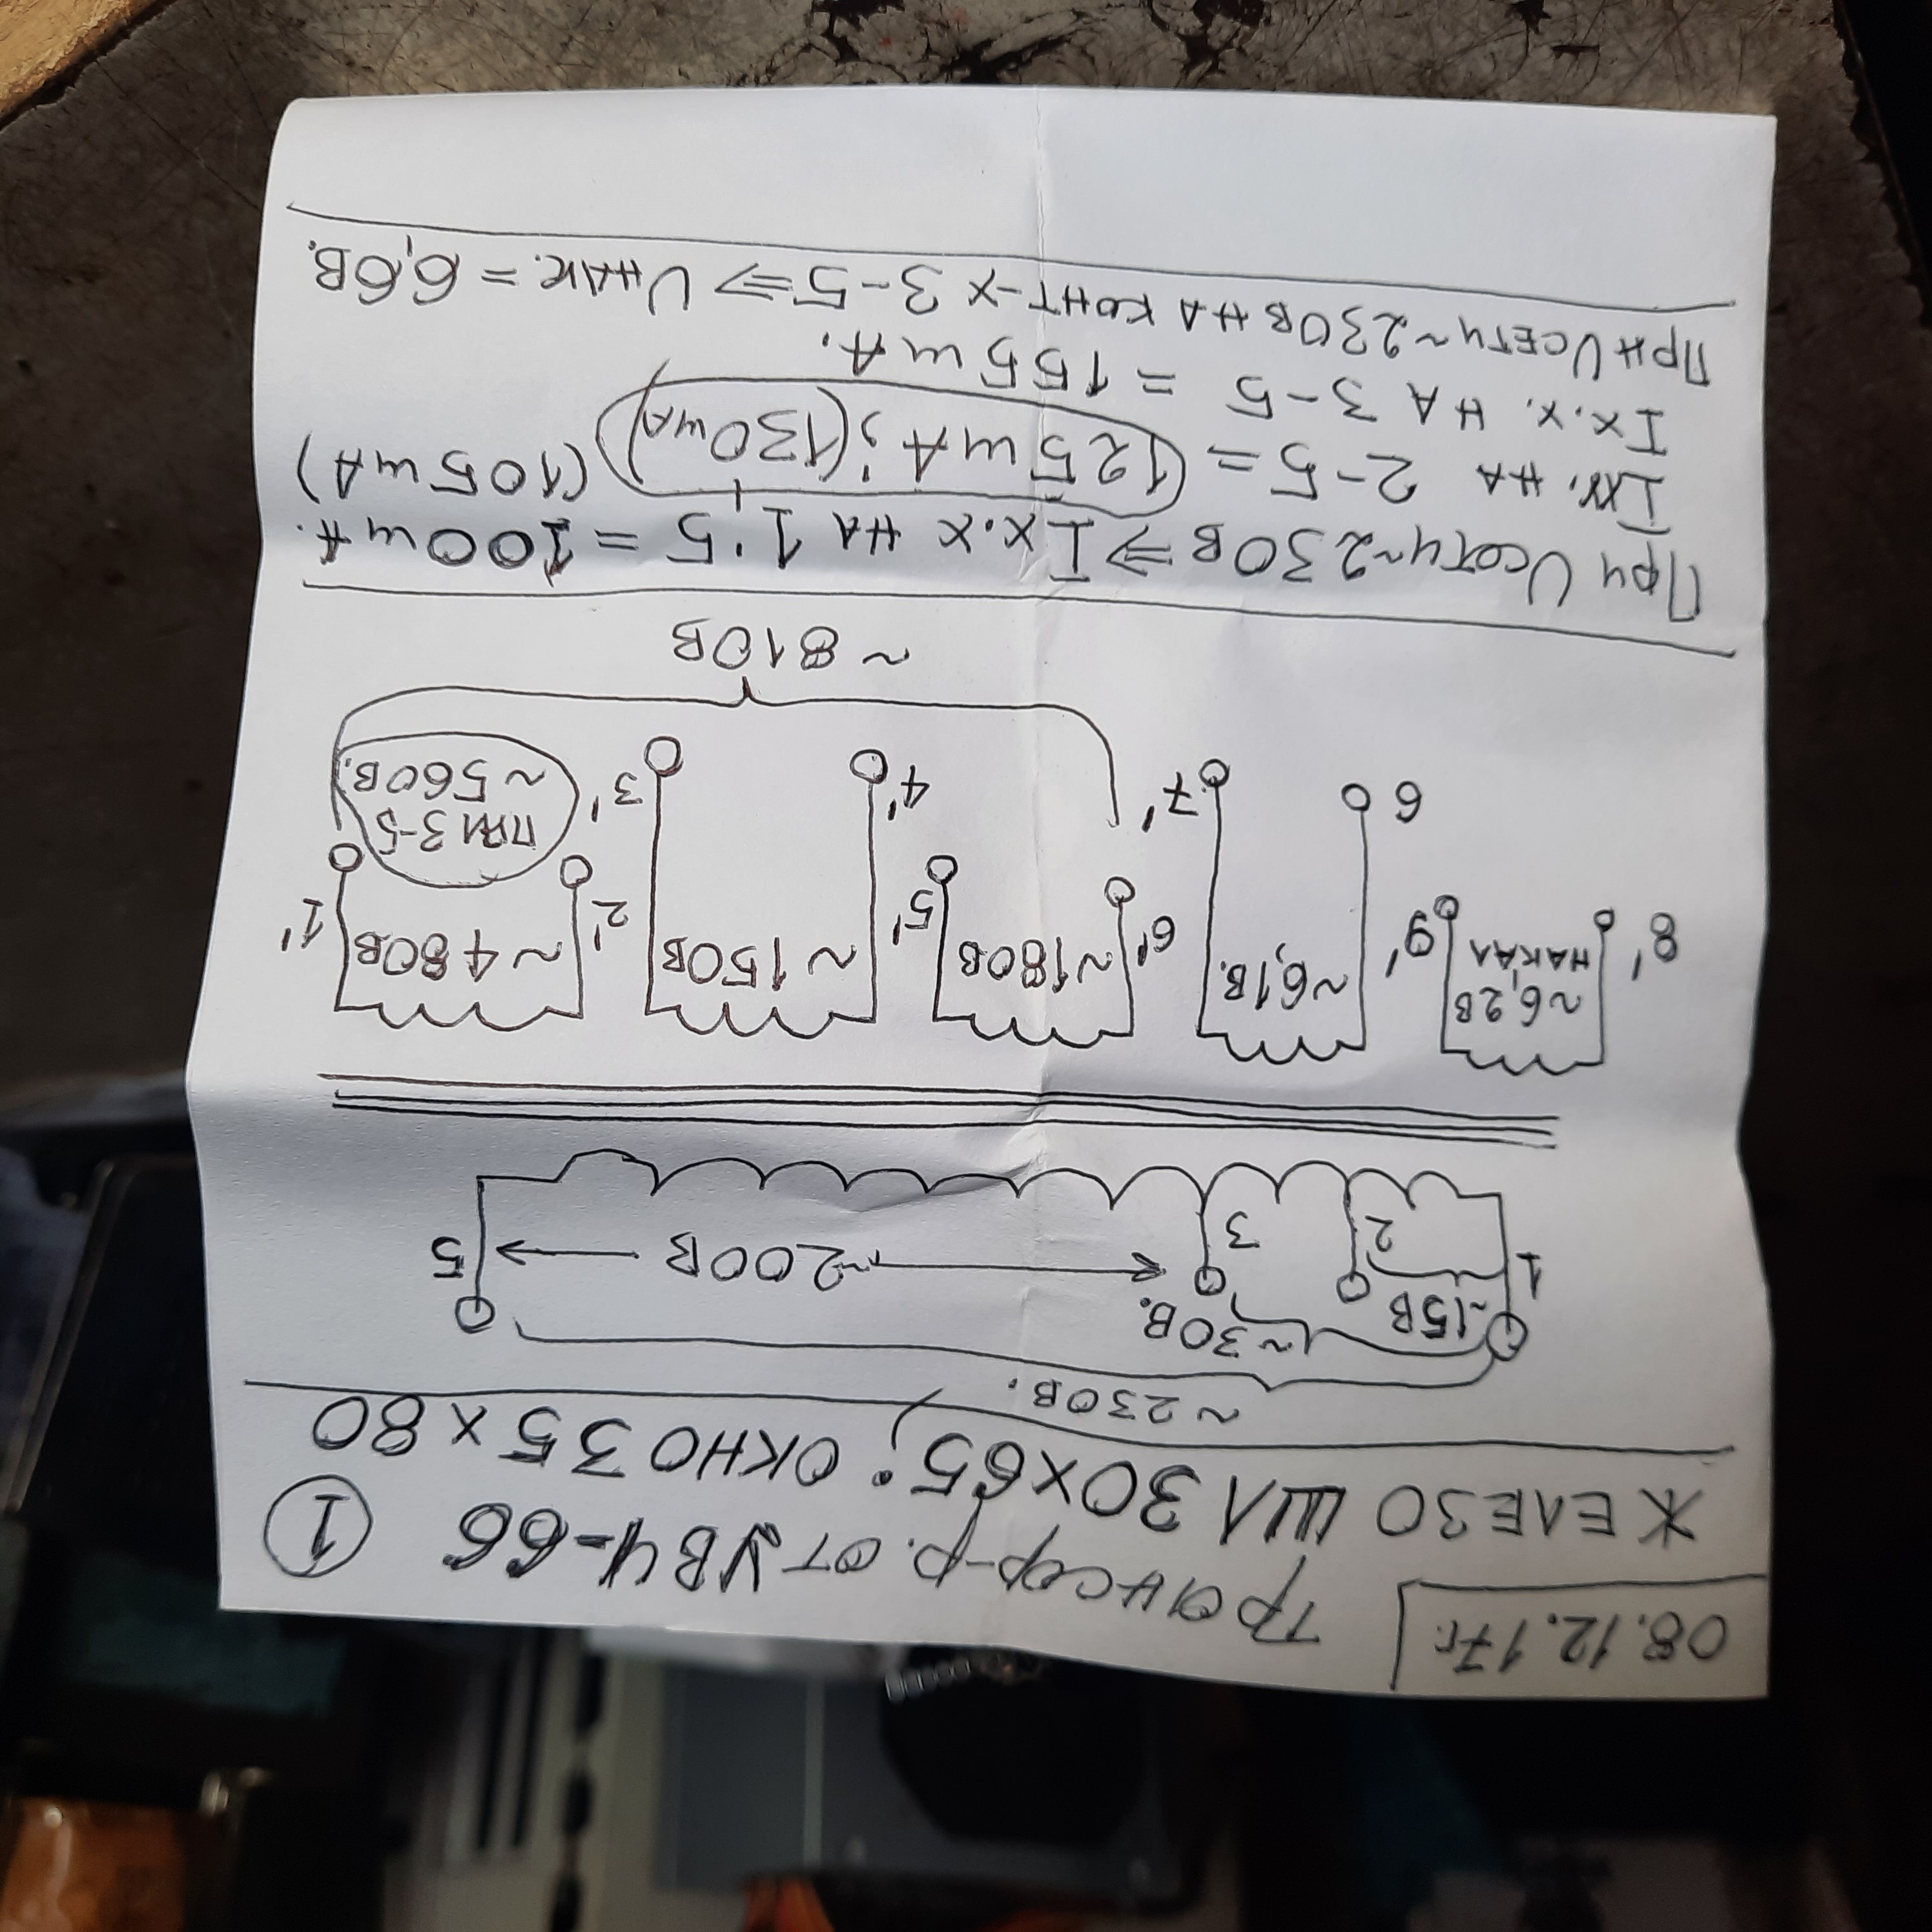 08.12.17г.
трансф-р. от УВЧ-66 ①
ЖЕЛЕЗО ШЛ 30х65; ОКНО 35 х 80
~230В.
~15В
~30В.
1 2 3 ~200В 5
~6,2В
НАКАЛ
~6,1В.
~180В
~150В
~480В
8' 9' 6 7' 6' 5' 4' 3' 2' 1'
ПРИ 3-5
~560В.
~810В
При Uсети~230В ⇒ Iх.х НА 1-5 = 100mA.
(105mA)
Iхх. НА 2-5 = 125mA; (130mA)
Iх.х. НА 3-5 = 155mA.
При Uсети~230В НА КОНТ-Х 3-5 ⇒ UНАК. = 6,6В.